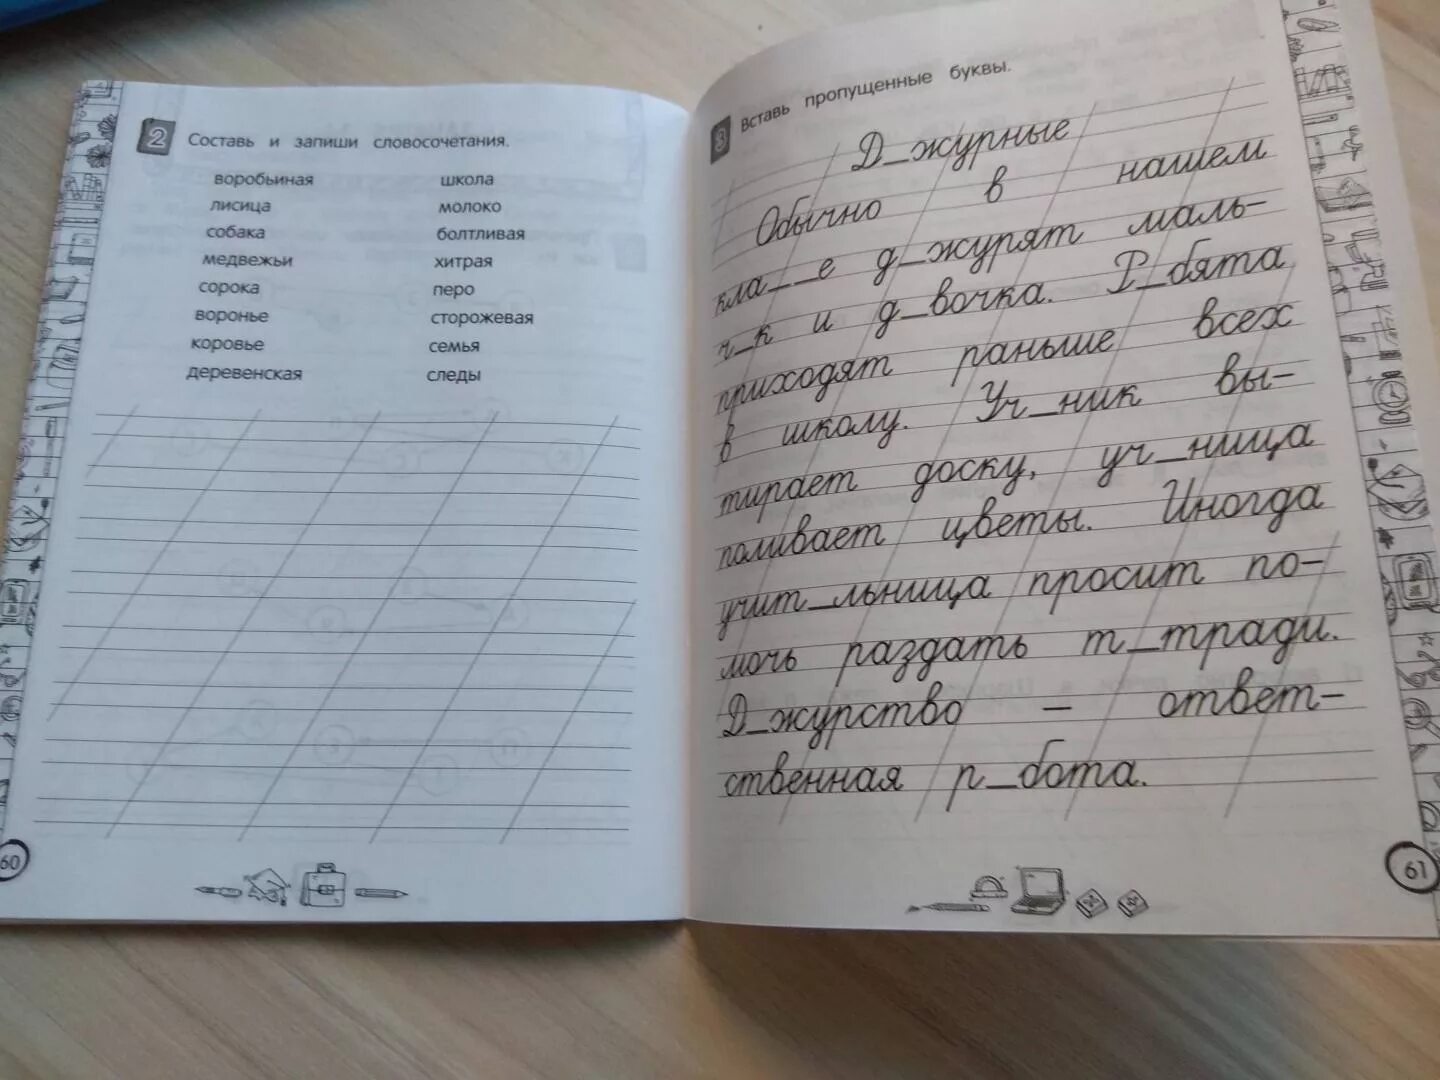 2 Составь и запиши словосочетания.
воробьиная школа
лисица молоко
собака болтливая
медвежьи хитрая
сорока перо
воронье сторожевая
коровье семья
деревенская следы
60
3 Вставь пропущенные буквы.
Д_журные
Обычно в нашем
кла__е д_журят маль-
ч_к и д_вочка. Р_бята
приходят раньше всех
в школу. Уч_ник вы-
тирает доску, уч_ница
поливает цветы. Иногда
учит_льница просит по-
мочь раздать т_тради.
Д_журство – ответ-
ственная р_бота.
61